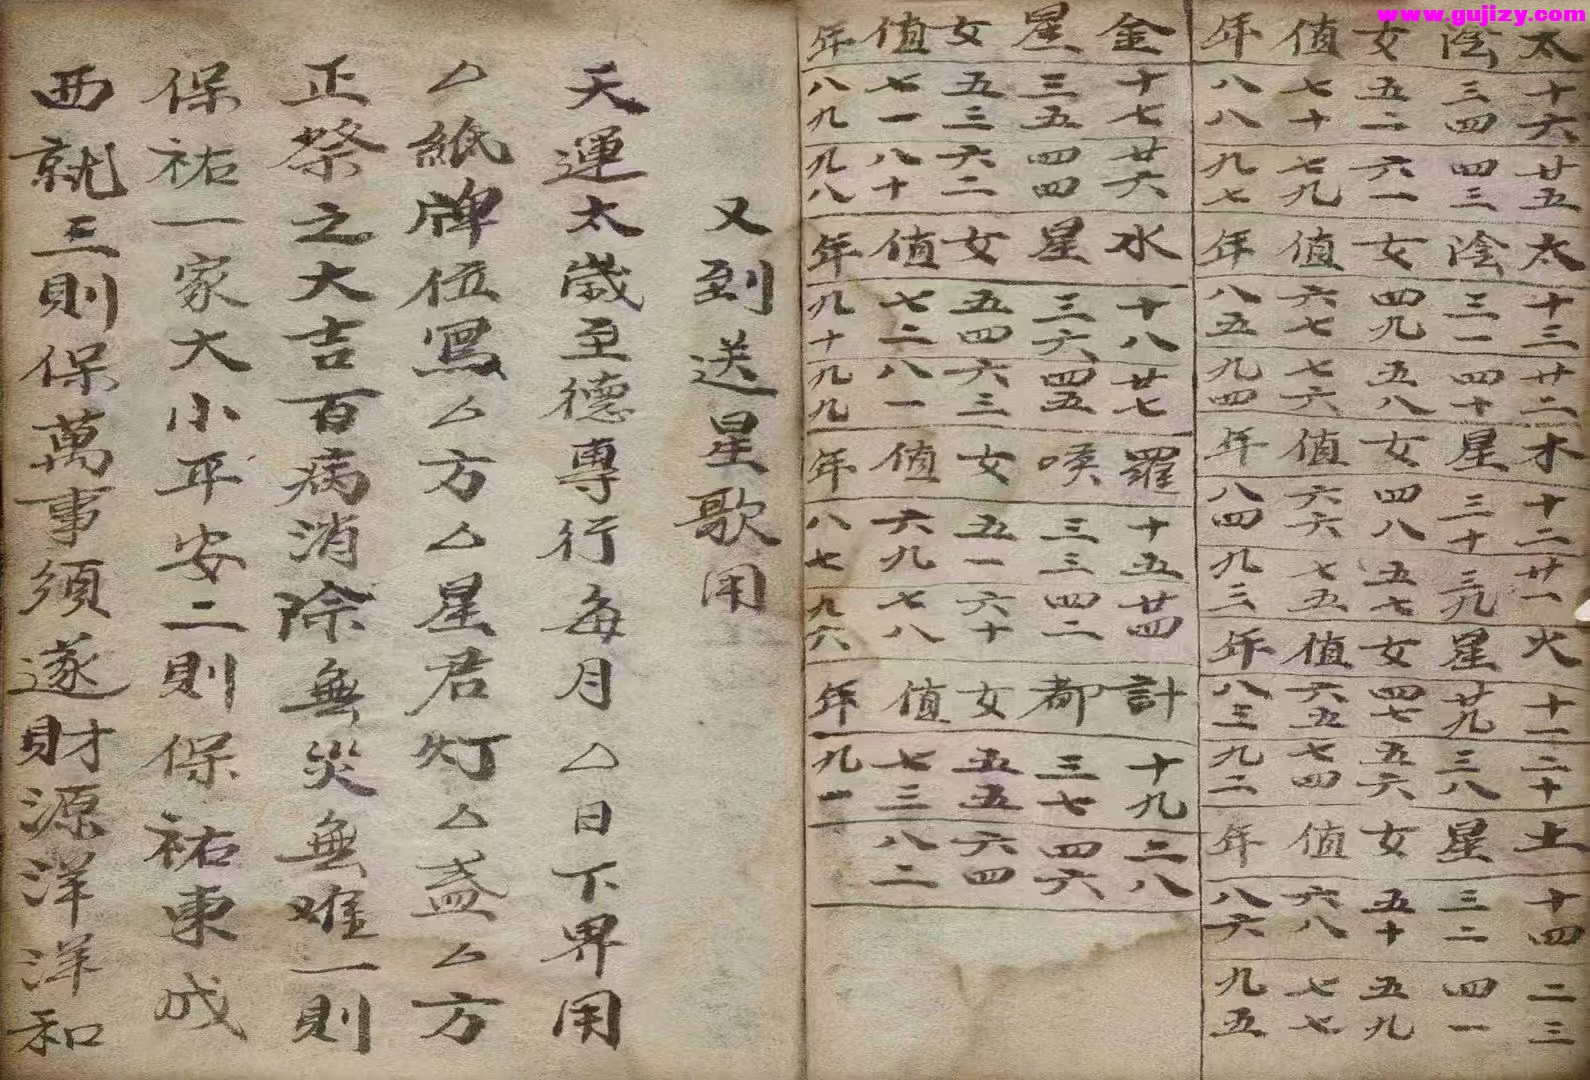 www.gujizy.com
太陰女值年
十六 三四 五二 七十 八八
廿五 四三 六一 七九 九七
太陰女值年
十三 三一 四九 六七 八五
廿二 四十 五八 七六 九四
木星女值年
十二 三十 四八 六六 八四
廿一 三九 五七 七五 九三
火星女值年
十一 廿九 四七 六五 八三
二十 三八 五六 七四 九二
土星女值年
十四 三二 五十 六八 八六
二三 四一 五九 七七 九五
金星女值年
十七 三五 五三 七一 八九
廿六 四四 六二 八十 九八
水星女值年
十八 三六 五四 七二 九十
廿七 四五 六三 八一 九九
羅唉女值年
十五 三三 五一 六九 八七
廿四 四二 六十 七八 九六
計都女值年
十九 三七 五五 七三 九一
二八 四六 六四 八二
又到送星歌用
天運太歲至德專行每月厶日下界用
厶紙牌位寫厶方厶星君灯厶盞厶方
正祭之大吉百病消除無災無难一則
保祐一家大小平安二則保祐東成
西就三則保萬事須遂財源洋洋和